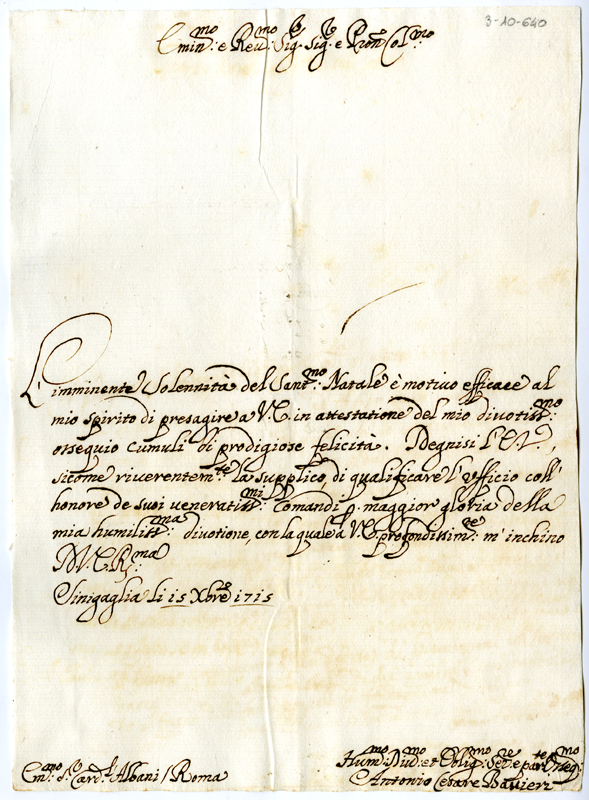 3-10-640
Emin.mo e Reu.mo Sig. Sig. e Pron Col.mo
L'imminente Solennità del Sant.mo Natale è motiuo efficace al
mio spirito di presagire a V.E. in attestatione del mio diuotiss.mo
ossequio cumuli di prodigiose felicità. Degnisi l'E.V.,
sicome riuerentem.te la supplico, di qualificare l'vfficio coll'
honore de suoi veneratiss.mi Comandi p. maggior gloria della
mia humiliss.ma diuotione, con la quale a V.E. profondissim.te m'inchino
D.V.E.R.ma
Sinigaglia li 15 Xbre 1715
Em.mo S. Card. Albani / Roma
Hum.mo Diu.mo et Oblig.mo Ser.re
Antonio Cesare Bauieri